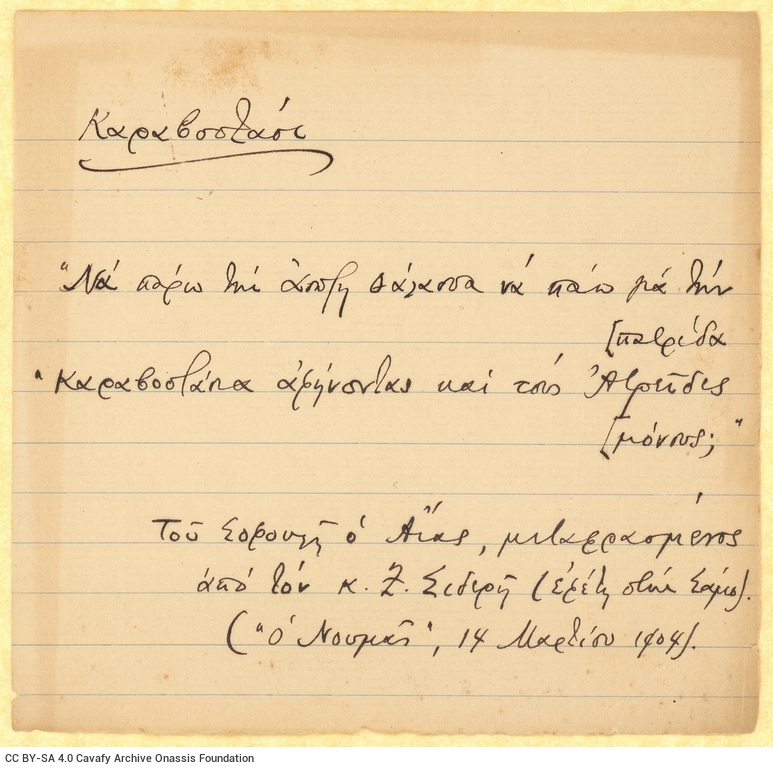 Καραβοστάσι
"Νά πάρω τήν ἄσπρη θάλασσα νά πάω γιά τήν
[πατρίδα
"Καραβοστάσια ἀφήνοντας καί τούς Ἀτρεῖδες
[μόνους;"
Τοῦ Σοφουλῆ ὁ Αἴας, μεταφρασμένος
ἀπό τόν κ. Ζ. Σιδερῆ (ἐφέτη στήν Σάμο).
("Ὁ Νουμᾶς", 14 Μαρτίου 1904).
CC BY-SA 4.0 Cavafy Archive Onassis Foundation